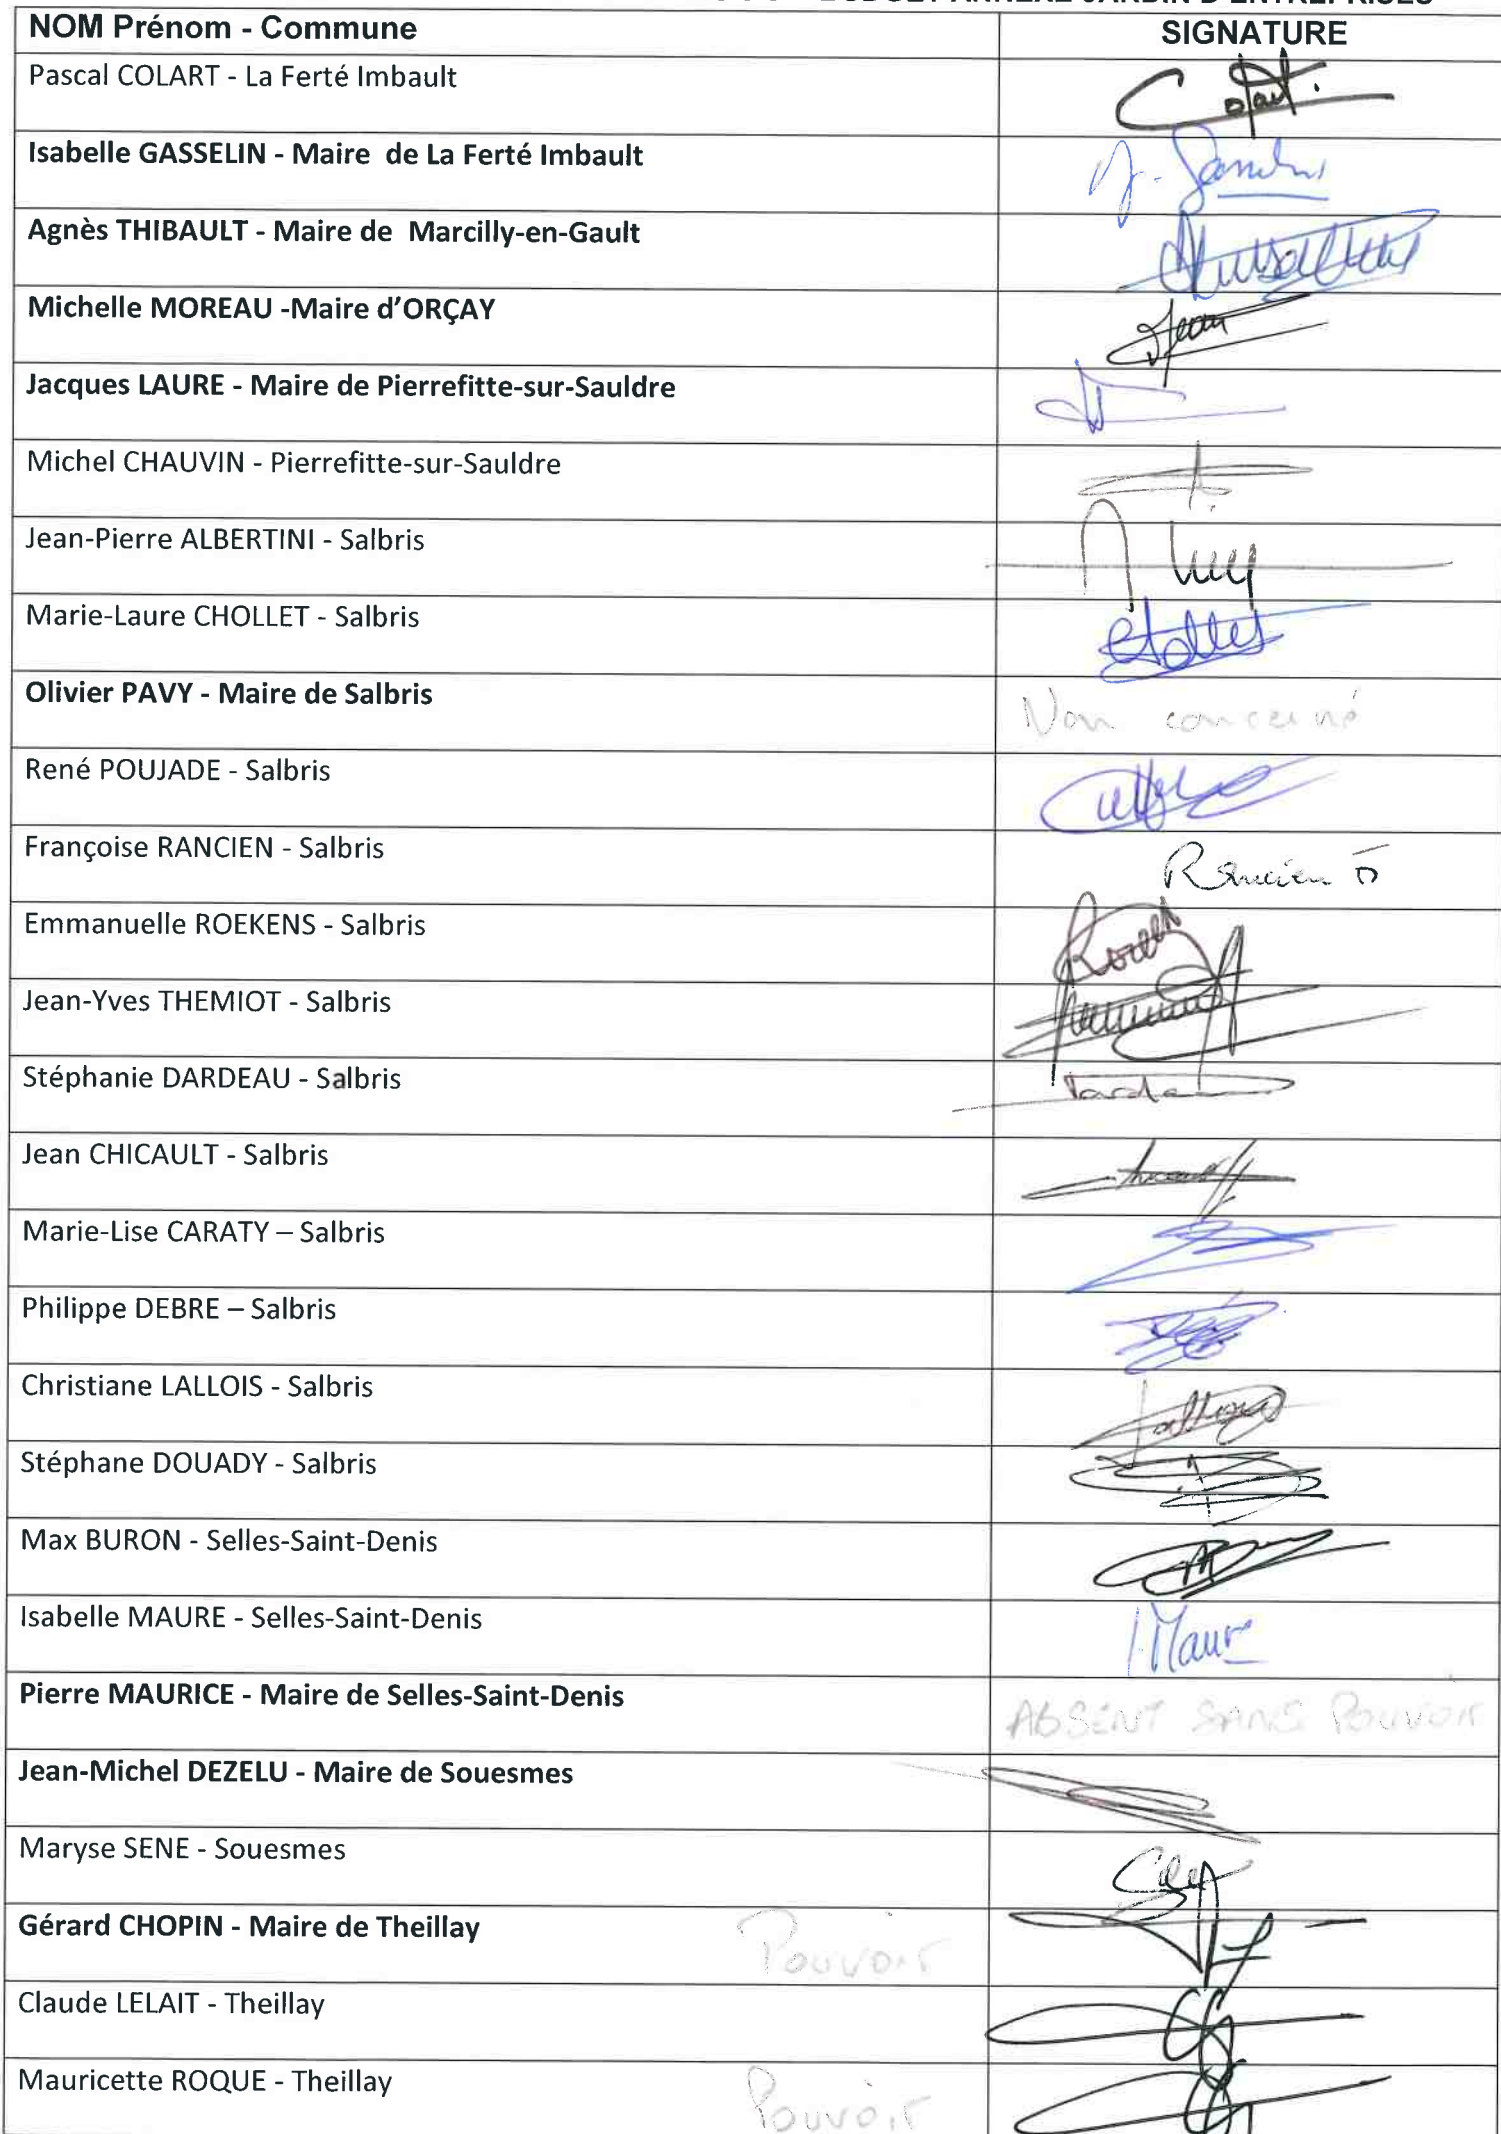 BUDGET ANNEXE JARDIN D'ENTREPRISES
NOM Prénom - Commune SIGNATURE
Pascal COLART - La Ferté Imbault
Isabelle GASSELIN - Maire de La Ferté Imbault
Agnès THIBAULT - Maire de Marcilly-en-Gault
Michelle MOREAU -Maire d'ORÇAY
Jacques LAURE - Maire de Pierrefitte-sur-Sauldre
Michel CHAUVIN - Pierrefitte-sur-Sauldre
Jean-Pierre ALBERTINI - Salbris
Marie-Laure CHOLLET - Salbris
Olivier PAVY - Maire de Salbris Non concerné
René POUJADE - Salbris
Françoise RANCIEN - Salbris Rancien
Emmanuelle ROEKENS - Salbris
Jean-Yves THEMIOT - Salbris
Stéphanie DARDEAU - Salbris
Jean CHICAULT - Salbris
Marie-Lise CARATY – Salbris
Philippe DEBRE – Salbris
Christiane LALLOIS - Salbris
Stéphane DOUADY - Salbris
Max BURON - Selles-Saint-Denis
Isabelle MAURE - Selles-Saint-Denis IMaure
Pierre MAURICE - Maire de Selles-Saint-Denis ABSENT SANS POUVOIR
Jean-Michel DEZELU - Maire de Souesmes
Maryse SENE - Souesmes
Gérard CHOPIN - Maire de Theillay Pouvoir
Claude LELAIT - Theillay
Mauricette ROQUE - Theillay Pouvoir